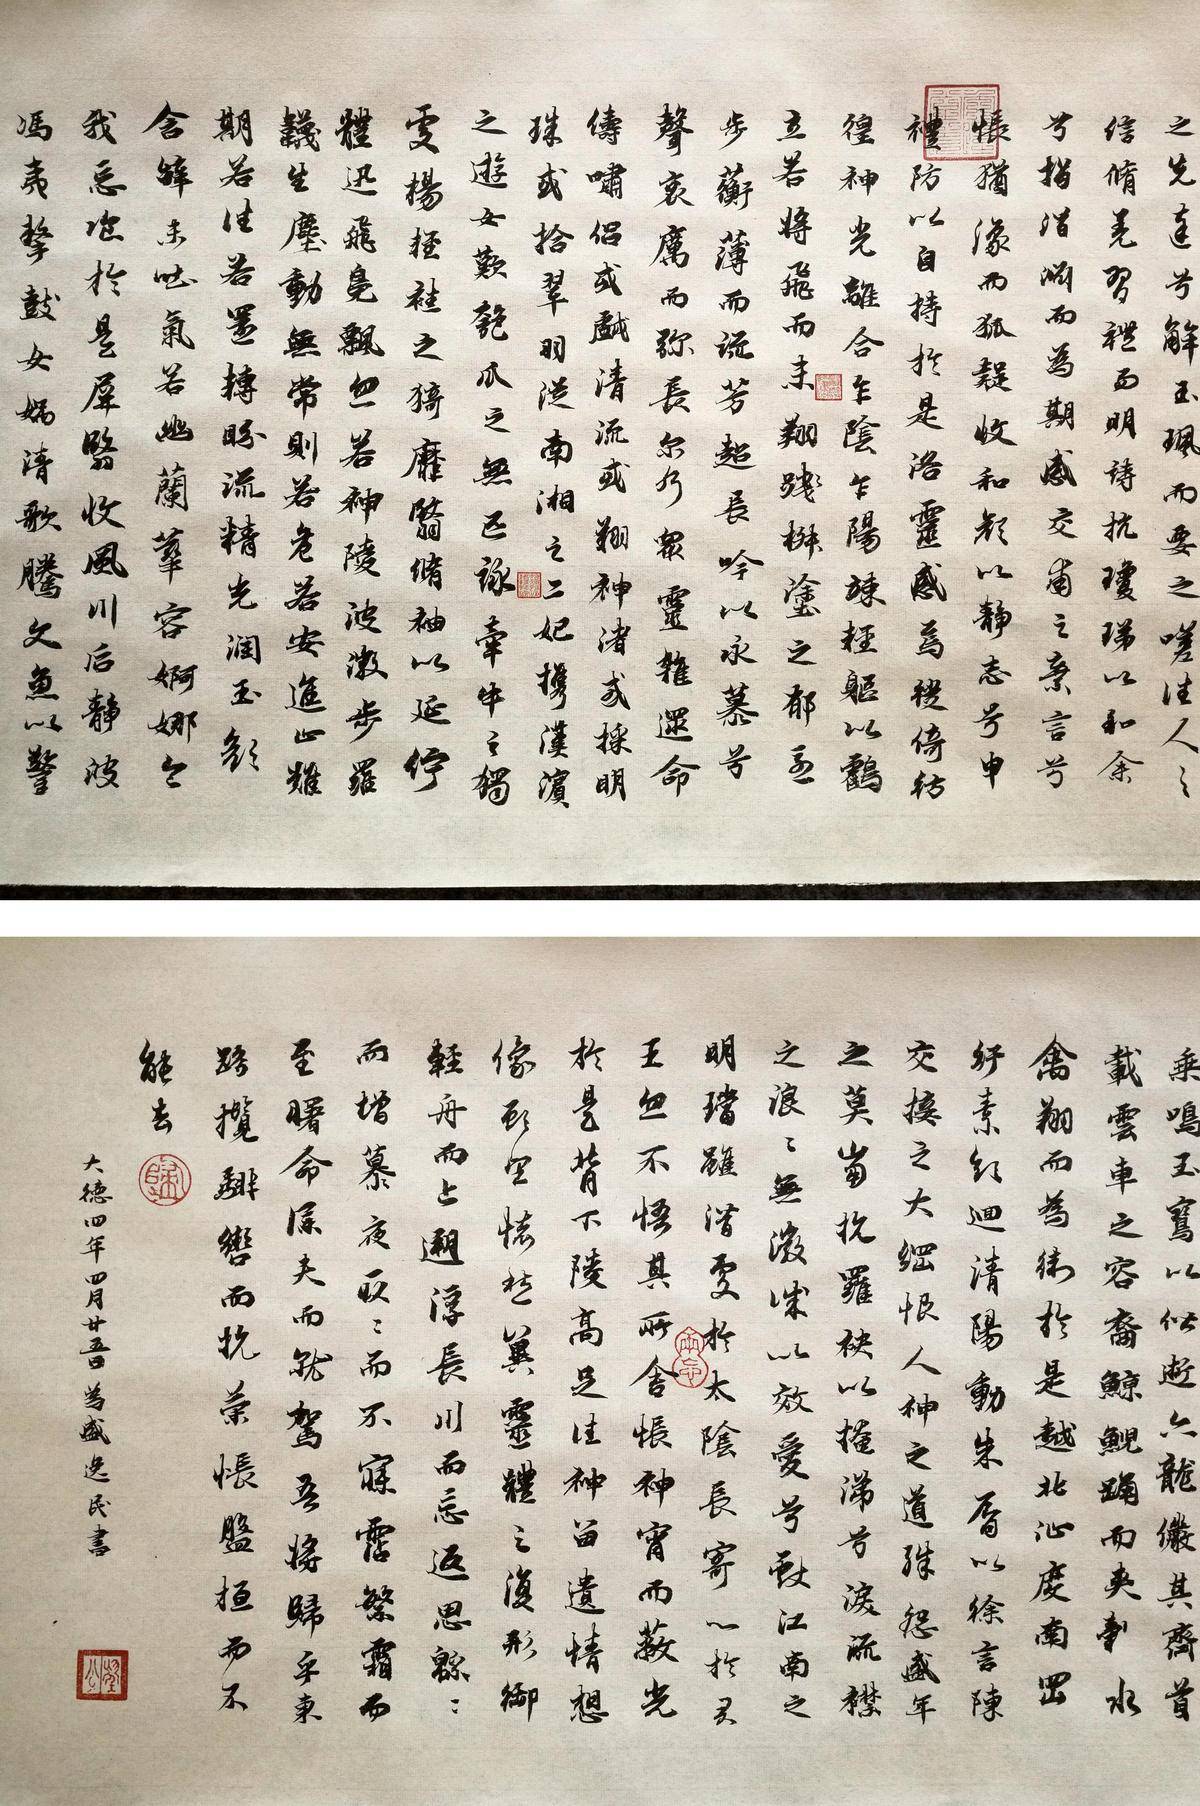 之先達兮解玉珮而要之嗟佳人之
信脩羌習禮而明詩抗瓊珶以和余
兮指潛淵而為期感交甫之棄言兮
悵猶豫而狐疑收和顏以靜志兮申
禮防以自持於是洛靈感焉徙倚彷
徨神光離合乍陰乍陽竦輕軀以鶴
立若將飛而未翔踐椒塗之郁烈
步蘅薄而流芳超長吟以永慕兮
聲哀厲而彌長爾乃眾靈雜遝命
儔嘯侶或戲清流或翔神渚或採明
珠或拾翠羽從南湘之二妃攜漢濱
之遊女歎匏瓜之無匹詠牽牛之獨
處楊輕袿之猗靡翳脩袖以延佇
體迅飛鳧飄忽若神陵波微步羅
韈生塵動無常則若危若安進止難
期若往若還轉眄流精光潤玉顏
含辭未吐氣若幽蘭華容婀娜令
我忘飡於是屏翳收風川后靜波
馮夷擊鼓女媧清歌騰文魚以警
乘鳴玉鸞以偕逝六龍儼其齊首
載雲車之容裔鯨鯢踴而夾轂水
禽翔而為衛於是越北沚度南岡
紆素領迴清陽動朱脣以徐言陳
交接之大綱恨人神之道殊怨盛年
之莫當抗羅袂以掩涕兮淚流襟
之浪々無微誠以效愛兮獻江南之
明璫雖潛處於太陰長寄心於君
王忽不悟其所舍悵神宵而蔽光
於是背下陵高足往神留遺情想
像顧望懷愁冀靈體之復形御
輕舟而上遡浮長川而忘返思緜々
而增慕夜耿々而不寐霑繁霜而
至曙命僕夫而就駕吾將歸乎東
路攬騑轡而抗策悵盤桓而不
能去
大德四年四月廿五日為盛逸民書